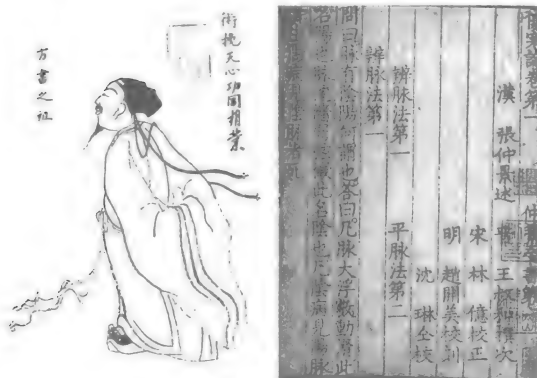 術挽天心功同相業
方書之祖
傷寒論卷第一 仲景全書第
漢 張仲景述 晉 王叔和撰次
宋 林億校正
明 趙開美校刻
沈琳仝校
辨脉法第一 平脉法第二
辨脉法第一
問曰脉有陰陽何謂也答曰凡脉大浮數動滑此
名陽也脉沉濇弱弦微此名陰也凡陰病見陽脉